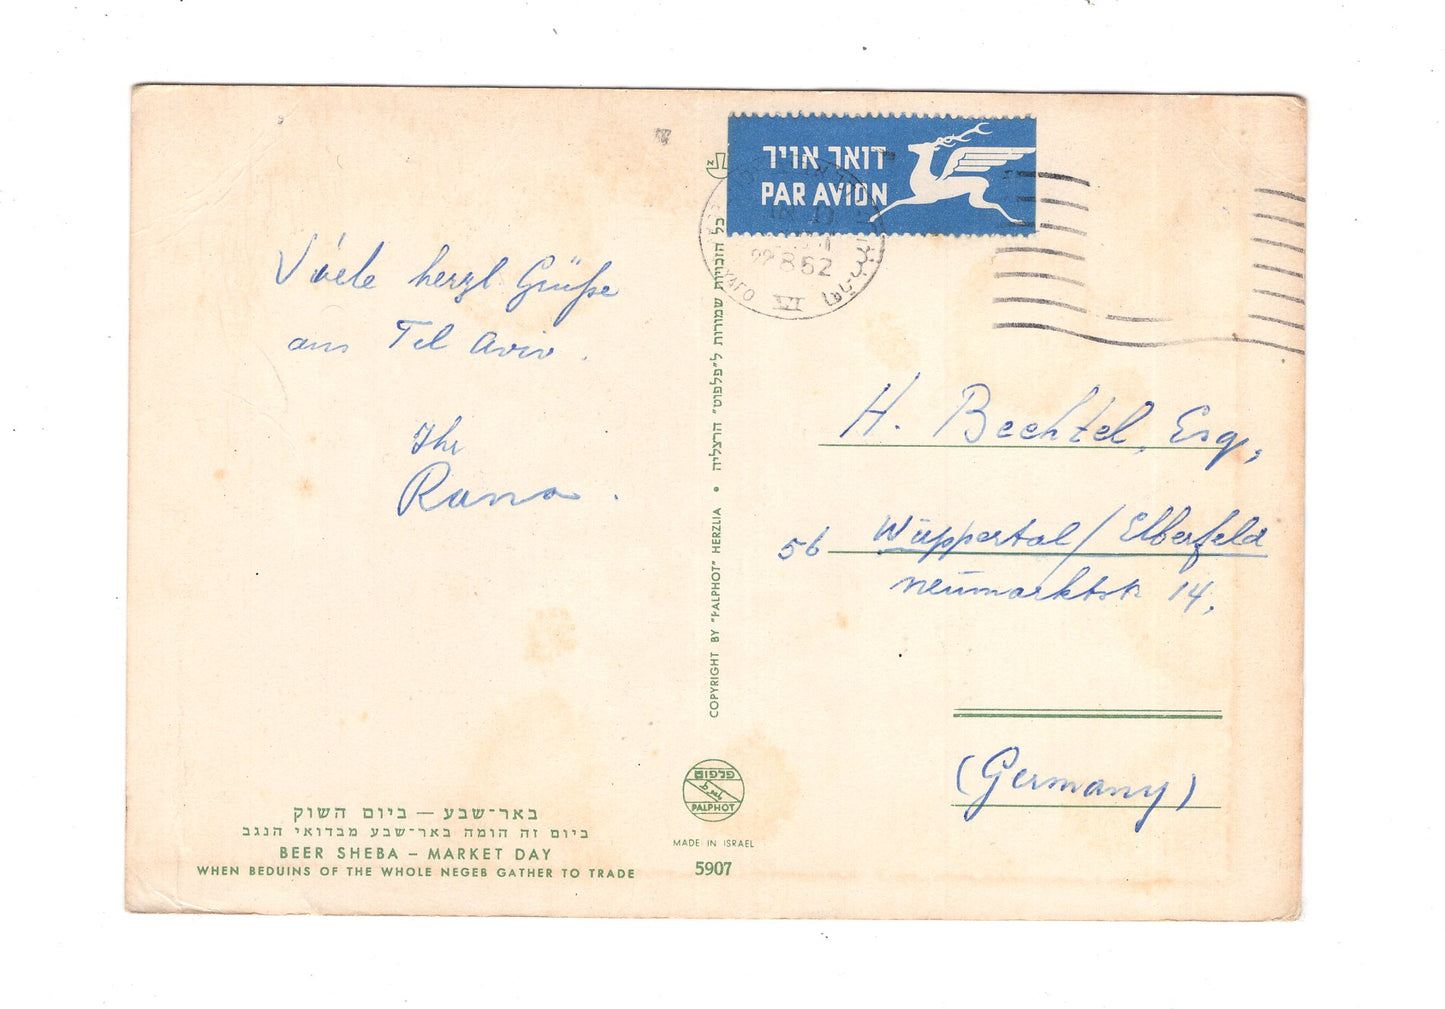 Viele herzl Grüße
aus Tel Aviv.
Ihr
באר־שבע — ביום השוק
ביום זה הומה באר־שבע מבדואי הנגב
BEER SHEBA – MARKET DAY
WHEN BEDUINS OF THE WHOLE NEGEB GATHER TO TRADE
כל הזכויות שמורות ל"פלפוט" הרצליה • COPYRIGHT BY "PALPHOT" HERZLIA
פלפוט
PALPHOT
MADE IN ISRAEL
5907
דואר אויר
PAR AVION
8 62
YAFO
VI
H. Bechtel, Esq,
56 Wüppertal / Elberfeld
Neumarktstr 14,
(Germany)